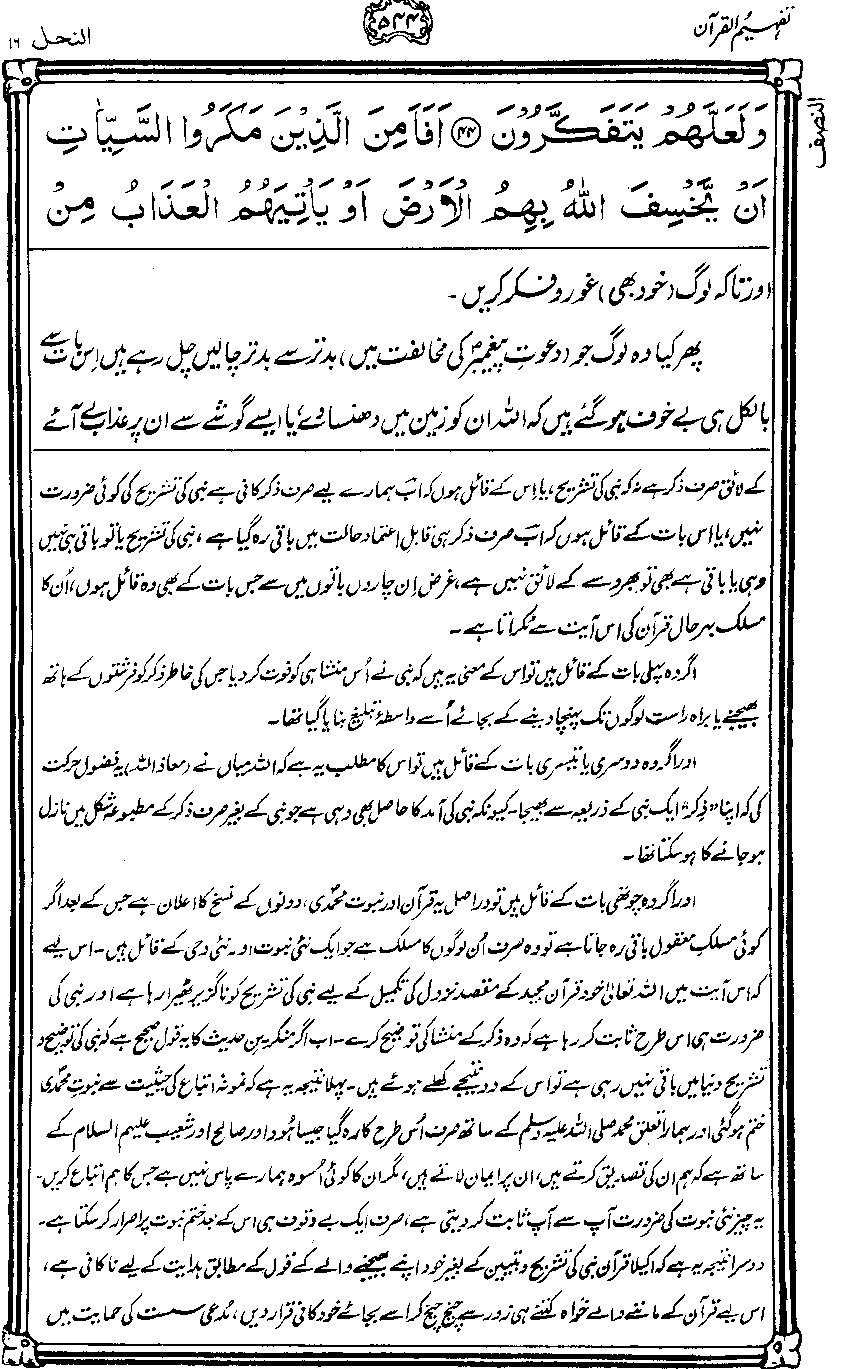 تفہیم القرآن
۵۴۴
النحل ۱۶
النصف
وَلَعَلَّهُمْ يَتَفَكَّرُوْنَ ﴿۴۴﴾ اَفَاَمِنَ الَّذِيْنَ مَكَرُوا السَّيِّاٰتِ
اَنْ يَّخْسِفَ اللّٰهُ بِهِمُ الْاَرْضَ اَوْ يَاْتِيَهُمُ الْعَذَابُ مِنْ
اور تاکہ لوگ (خود بھی) غور و فکر کریں۔
پھر کیا وہ لوگ جو (دعوتِ پیغمبرؐ کی مخالفت میں) بدتر سے بدتر چالیں چل رہے ہیں اِس بات سے
بالکل ہی بے خوف ہو گئے ہیں کہ اللہ ان کو زمین میں دھنسا دے، یا ایسے گوشے سے ان پر عذاب لے آئے
کے لائق صرف ذکر ہے نہ کہ نبی کی تشریح، یا اِس کے قائل ہوں کہ اب ہمارے لیے صرف ذکر کافی ہے نبی کی تشریح کی کوئی ضرورت
نہیں، یا اس بات کے قائل ہوں کہ اب صرف ذکر ہی قابلِ اعتماد حالت میں باقی رہ گیا ہے، نبی کی تشریح یا تو باقی ہی نہیں
رہی یا باقی ہے بھی تو بھروسے کے لائق نہیں ہے، غرض اِن چاروں باتوں میں سے جس بات کے بھی وہ قائل ہوں، اُن کا
مسلک بہرحال قرآن کی اس آیت سے ٹکراتا ہے۔
اگر وہ پہلی بات کے قائل ہیں تو اس کے معنی یہ ہیں کہ نبی نے اُس منشا ہی کو فوت کر دیا جس کی خاطر ذکر کو فرشتوں کے ہاتھ
بھیجنے یا براہ راست لوگوں تک پہنچا دینے کے بجائے اُسے واسطۂ تبلیغ بنایا گیا تھا۔
اور اگر وہ دوسری یا تیسری بات کے قائل ہیں تو اس کا مطلب یہ ہے کہ اللہ میاں نے (معاذ اللہ) یہ فضول حرکت
کی کہ اپنا "ذکر" ایک نبی کے ذریعہ سے بھیجا۔ کیونکہ نبی کی آمد کا حاصل بھی وہی ہے جو نبی کے بغیر صرف ذکر کے مطبوعہ شکل میں نازل
ہو جانے کا ہو سکتا تھا۔
اور اگر وہ چوتھی بات کے قائل ہیں تو دراصل یہ قرآن اور نبوت محمدی، دونوں کے نسخ کا اعلان ہے جس کے بعد اگر
کوئی مسلکِ معقول باقی رہ جاتا ہے تو وہ صرف اُن لوگوں کا مسلک ہے جو ایک نئی نبوت اور نئی وحی کے قائل ہیں۔ اس لیے
کہ اس آیت میں اللہ تعالیٰ خود قرآن مجید کے مقصدِ نزول کی تکمیل کے لیے نبی کی تشریح کو ناگزیر ٹھیرا رہا ہے اور نبی کی
ضرورت ہی اس طرح ثابت کر رہا ہے کہ وہ ذکر کے منشا کی توضیح کرے۔ اب اگر منکرینِ حدیث کا یہ قول صحیح ہے کہ نبی کی توضیح و
تشریح دنیا میں باقی نہیں رہی ہے تو اس کے دو نتیجے کھلے ہوئے ہیں۔ پہلا نتیجہ یہ ہے کہ نمونۂ اتباع کی حیثیت سے نبوتِ محمدی
ختم ہو گئی اور ہمارا تعلق محمد صلی اللہ علیہ وسلم کے ساتھ صرف اُس طرح کا رہ گیا جیسا ہُود اور صالح اور شعیب علیہم السلام کے
ساتھ ہے کہ ہم ان کی تصدیق کرتے ہیں، ان پر ایمان لاتے ہیں، مگر ان کا کوئی اُسوہ ہمارے پاس نہیں ہے جس کا ہم اتباع کریں۔
یہ چیز نئی نبوت کی ضرورت آپ سے آپ ثابت کر دیتی ہے، صرف ایک بے وقوف ہی اس کے بعد ختمِ نبوت پر اصرار کر سکتا ہے۔
دوسرا نتیجہ یہ ہے کہ اکیلا قرآن نبی کی تشریح و تبیین کے بغیر خود اپنے بھیجنے والے کے قول کے مطابق ہدایت کے لیے ناکافی ہے،
اس لیے قرآن کے ماننے والے خواہ کتنے ہی زور سے چیخ چیخ کر اسے بجائے خود کافی قرار دیں، مدعی سست کی حمایت میں